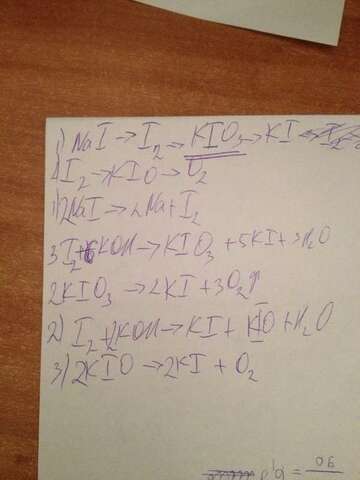 1) NaI → I₂ → KIO₃ → KI
I₂ → KIO → O₂
1) 2NaI → 2Na + I₂
3I₂ + 6KOH → KIO₃ + 5KI + 3H₂O
2KIO₃ → 2KI + 3O₂
2) I₂ + 2KOH → KI + KIO + H₂O
3) 2KIO → 2KI + O₂